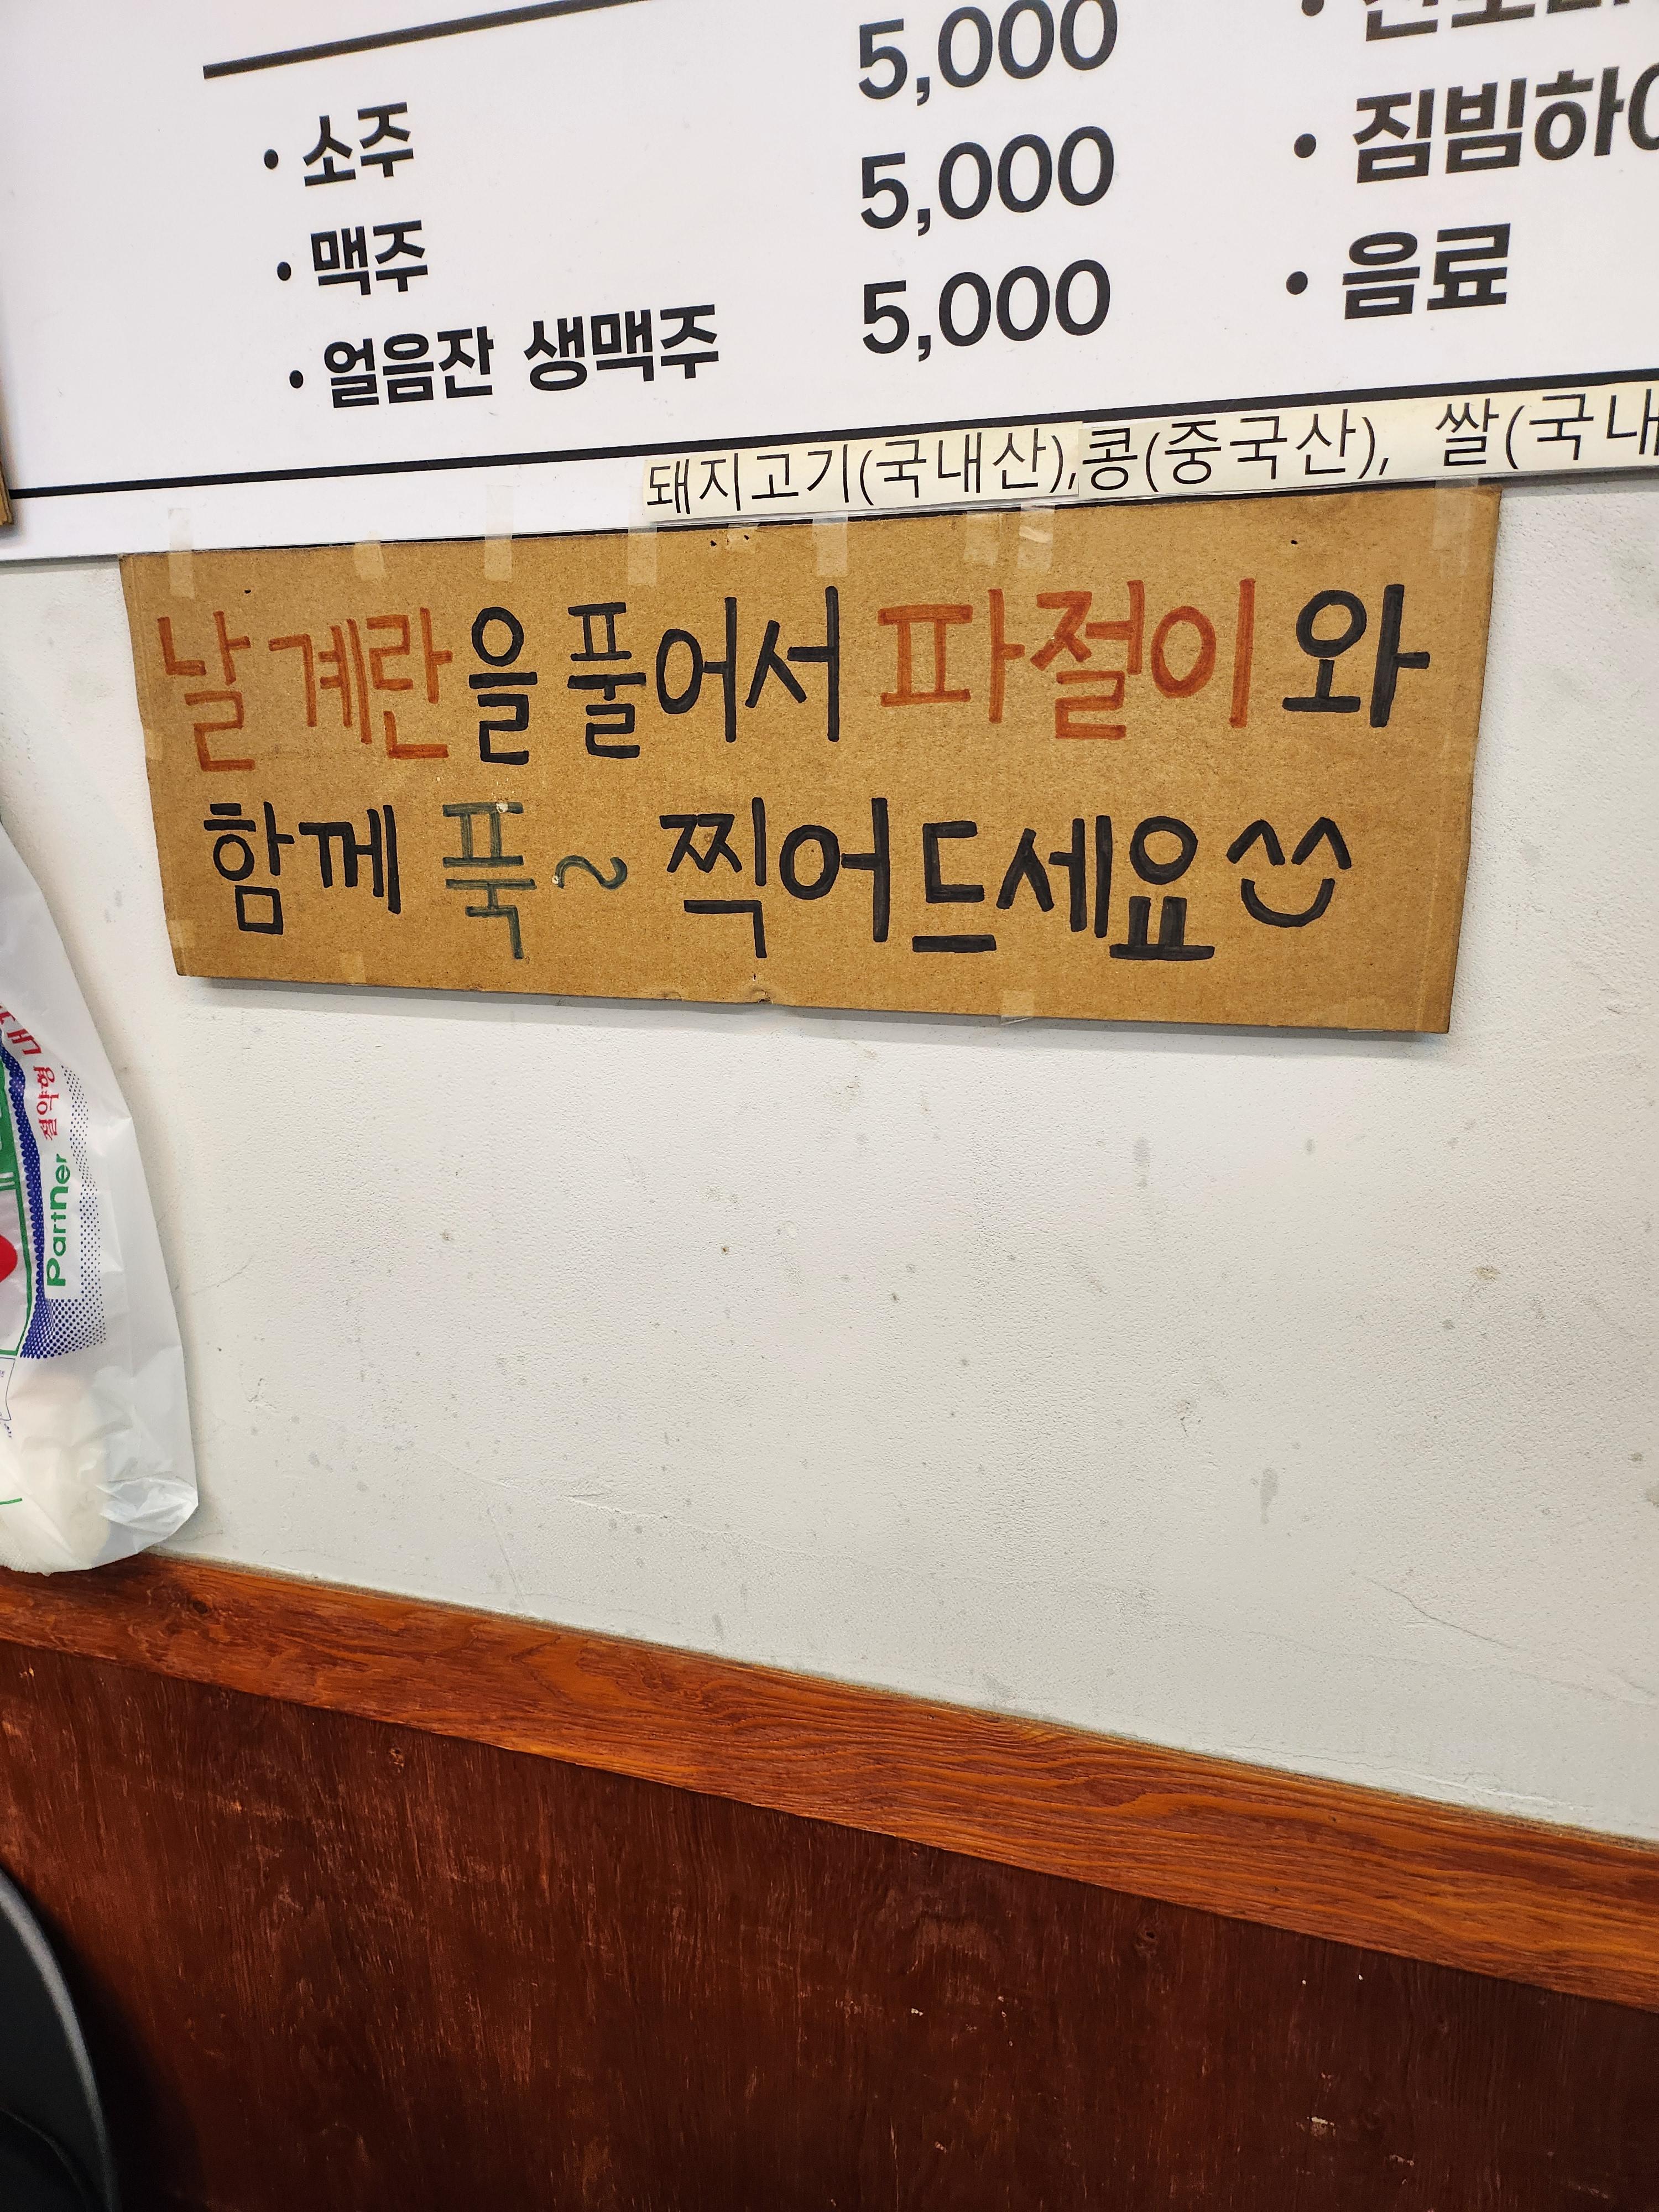 5,000
• 소주 5,000
• 맥주 5,000
• 얼음잔 생맥주
• 짐빔하이
• 음료
돼지고기(국내산),콩(중국산), 쌀(국내
날계란을 풀어서 파절이와
함께 푹~ 찍어드세요
절약형
Partner